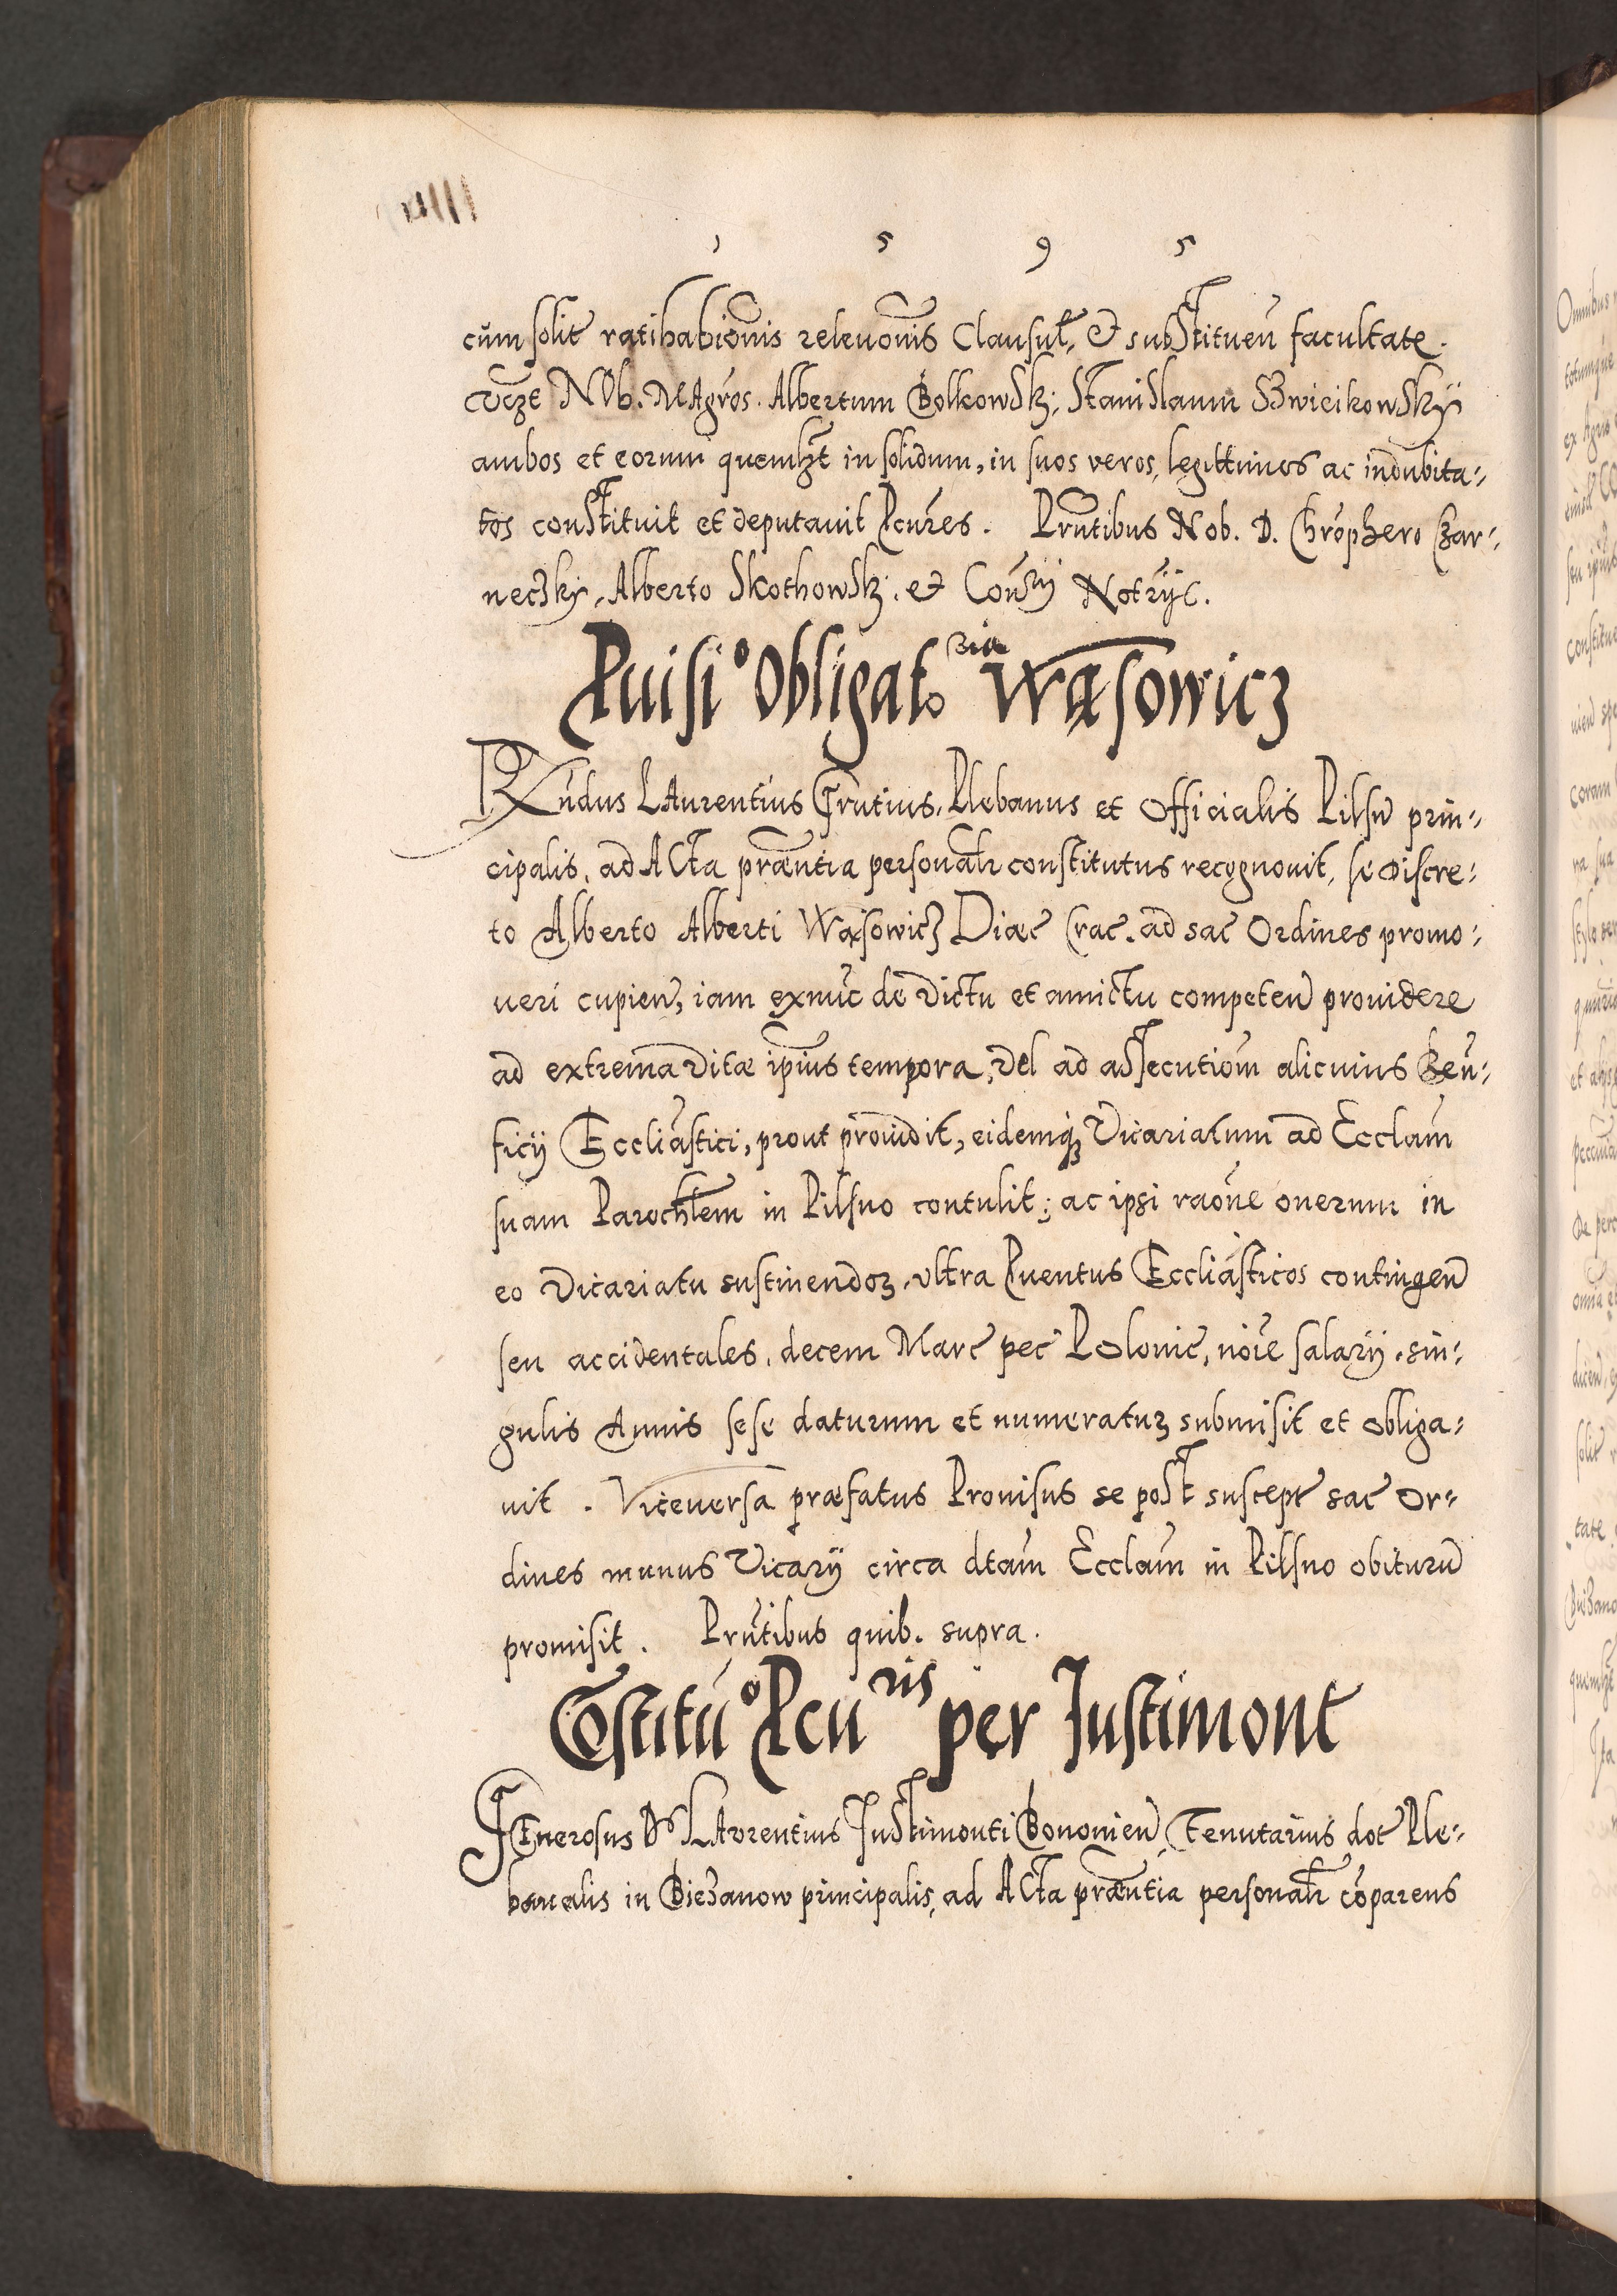 1 5 9 5
cum solit ratihabionis releuonis Clausul, et substituen facultate.
Nob. MAgros. Albertum Bolkowski, Stanislaum
ambos et eorum quemlzt in solidum, in suos veros, legittimos ac indubita-
tos constituit et deputauit Pcures. Prntibus Nob. D. Chrophero Czar-
neczky, Alberto Skothowsk. et Notrijs.
Puisi° Obligatoria Wąsowicz
RXndus LAurentius Grutius, Plebanus et Officialis Pilsn prin-
cipalis, ad ACta præntia personatr constitutus recognouit, se discre-
to Alberto Alberti Wąsowicz Diæc Crac. ad sac Ordines promo-
ueri cupien, iam exnuc de victu et amictu competen prouidere
ad extrema vitæ ipius tempora, vel ad assecutiom alicuius Ben-
ficij Eccliastici, prout prouidit, eidemq Vicariatum ad Ecclam
suam Parochlem in Pilsno contulit; ac ipsi raone onerum in
eo Vicariatu sustinendoz, vltra Puentus Eccliasticos contingen
seu accidentales, decem Marc pec Polonic, noie salarij, sin-
gulis Annis sese daturum et numeraturz submisit et obliga-
uit. Viceuersa præfatus Prouisus se post suscept sac Or-
dines munus Vicarij circa dtam Ecclam in Pilsno obiturum
promisit. Prntibus quib. supra.
Costitu° Pcuris per Justimont
GEnerosus Ds LAvrentius Justimonti Bononien, Tenutarius dot Ple-
banalis in Bieżanow principalis, ad ACta præntia personatr coparens